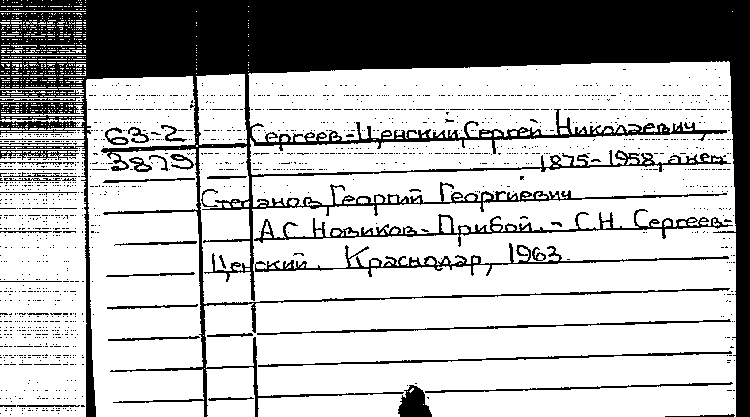 63-2
3879
Сергеев-Ценский, Сергей Николаевич,
1875-1958, о нем
Степанов, Георгий Георгиевич
А.С. Новиков-Прибой. - С.Н. Сергеев-
Ценский. Краснодар, 1963.